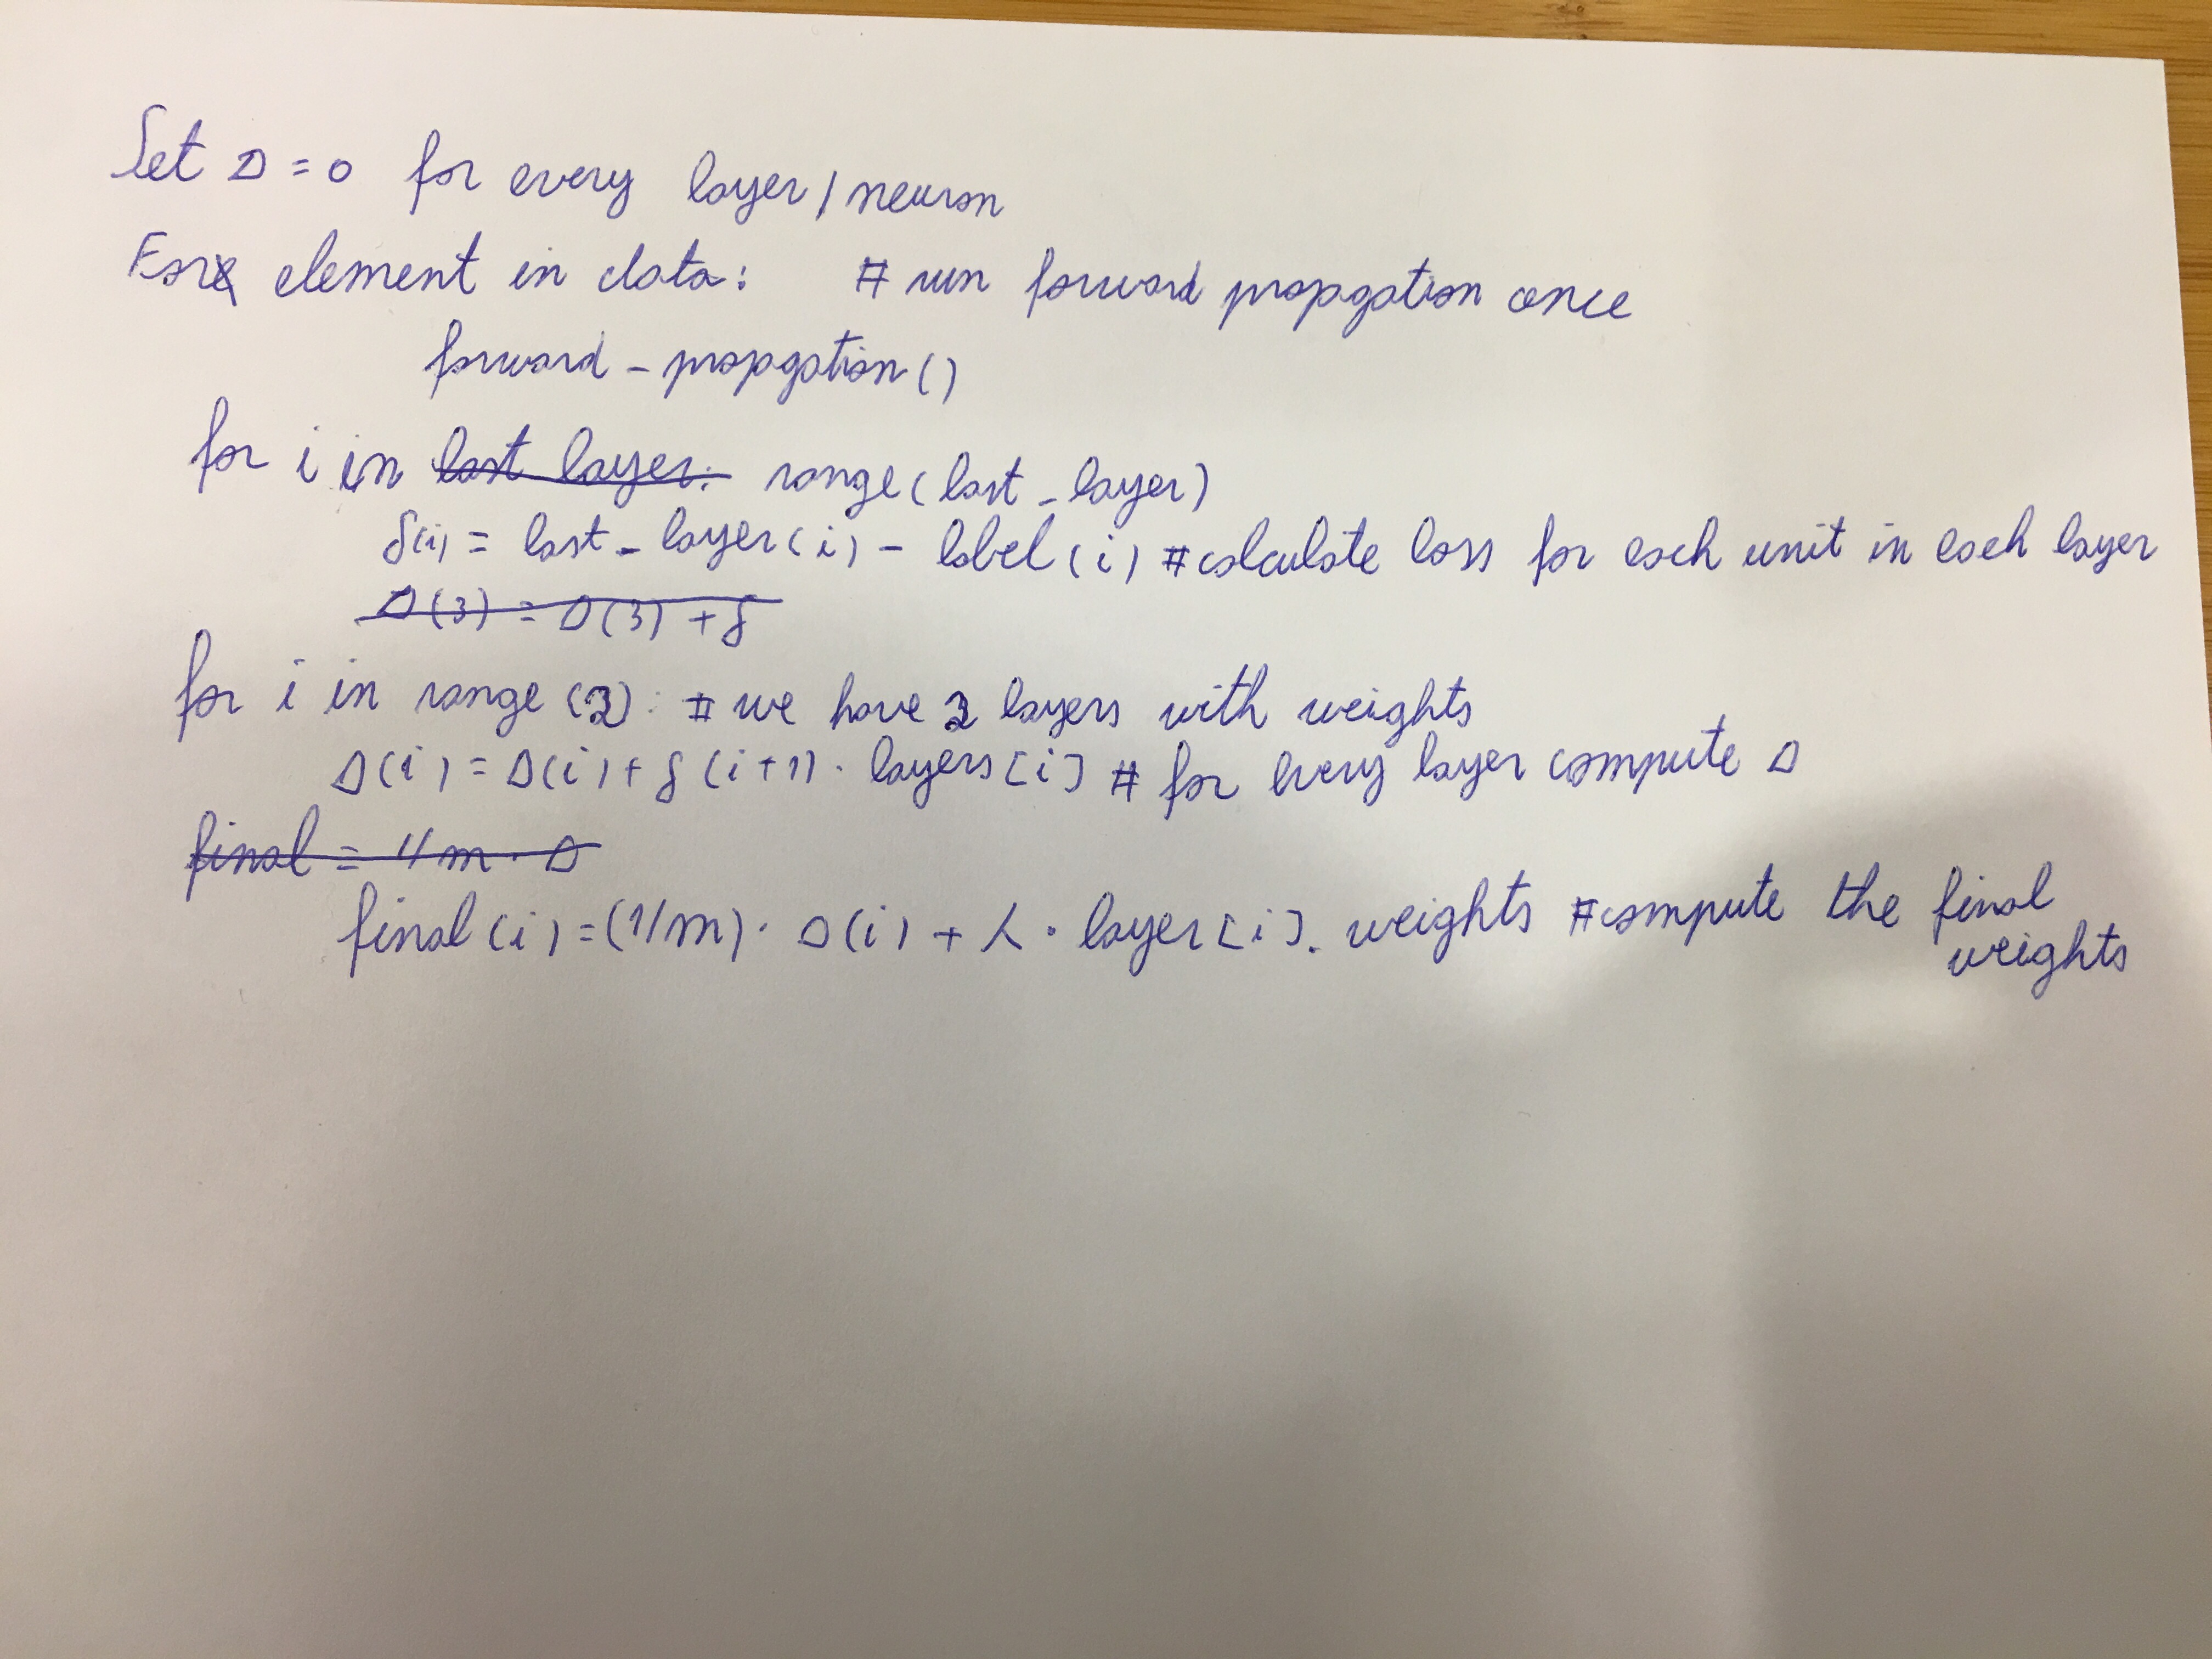 Set Δ = 0 for every layer/neuron
For element in data: # run forward propgation once
forward_propgation()
for i in last layer: range(last_layer)
δ(i) = last_layer(i) - label(i) #calculate loss for each unit in each layer
Δ(3) = Δ(3) + δ
for i in range(2): # we have 2 layers with weights
Δ(i) = Δ(i) + δ(i+1) · layers[i] # for every layer compute Δ
final = 1/m · Δ
final(i) = (1/m) · Δ(i) + λ · layer[i].weights #compute the final
weights